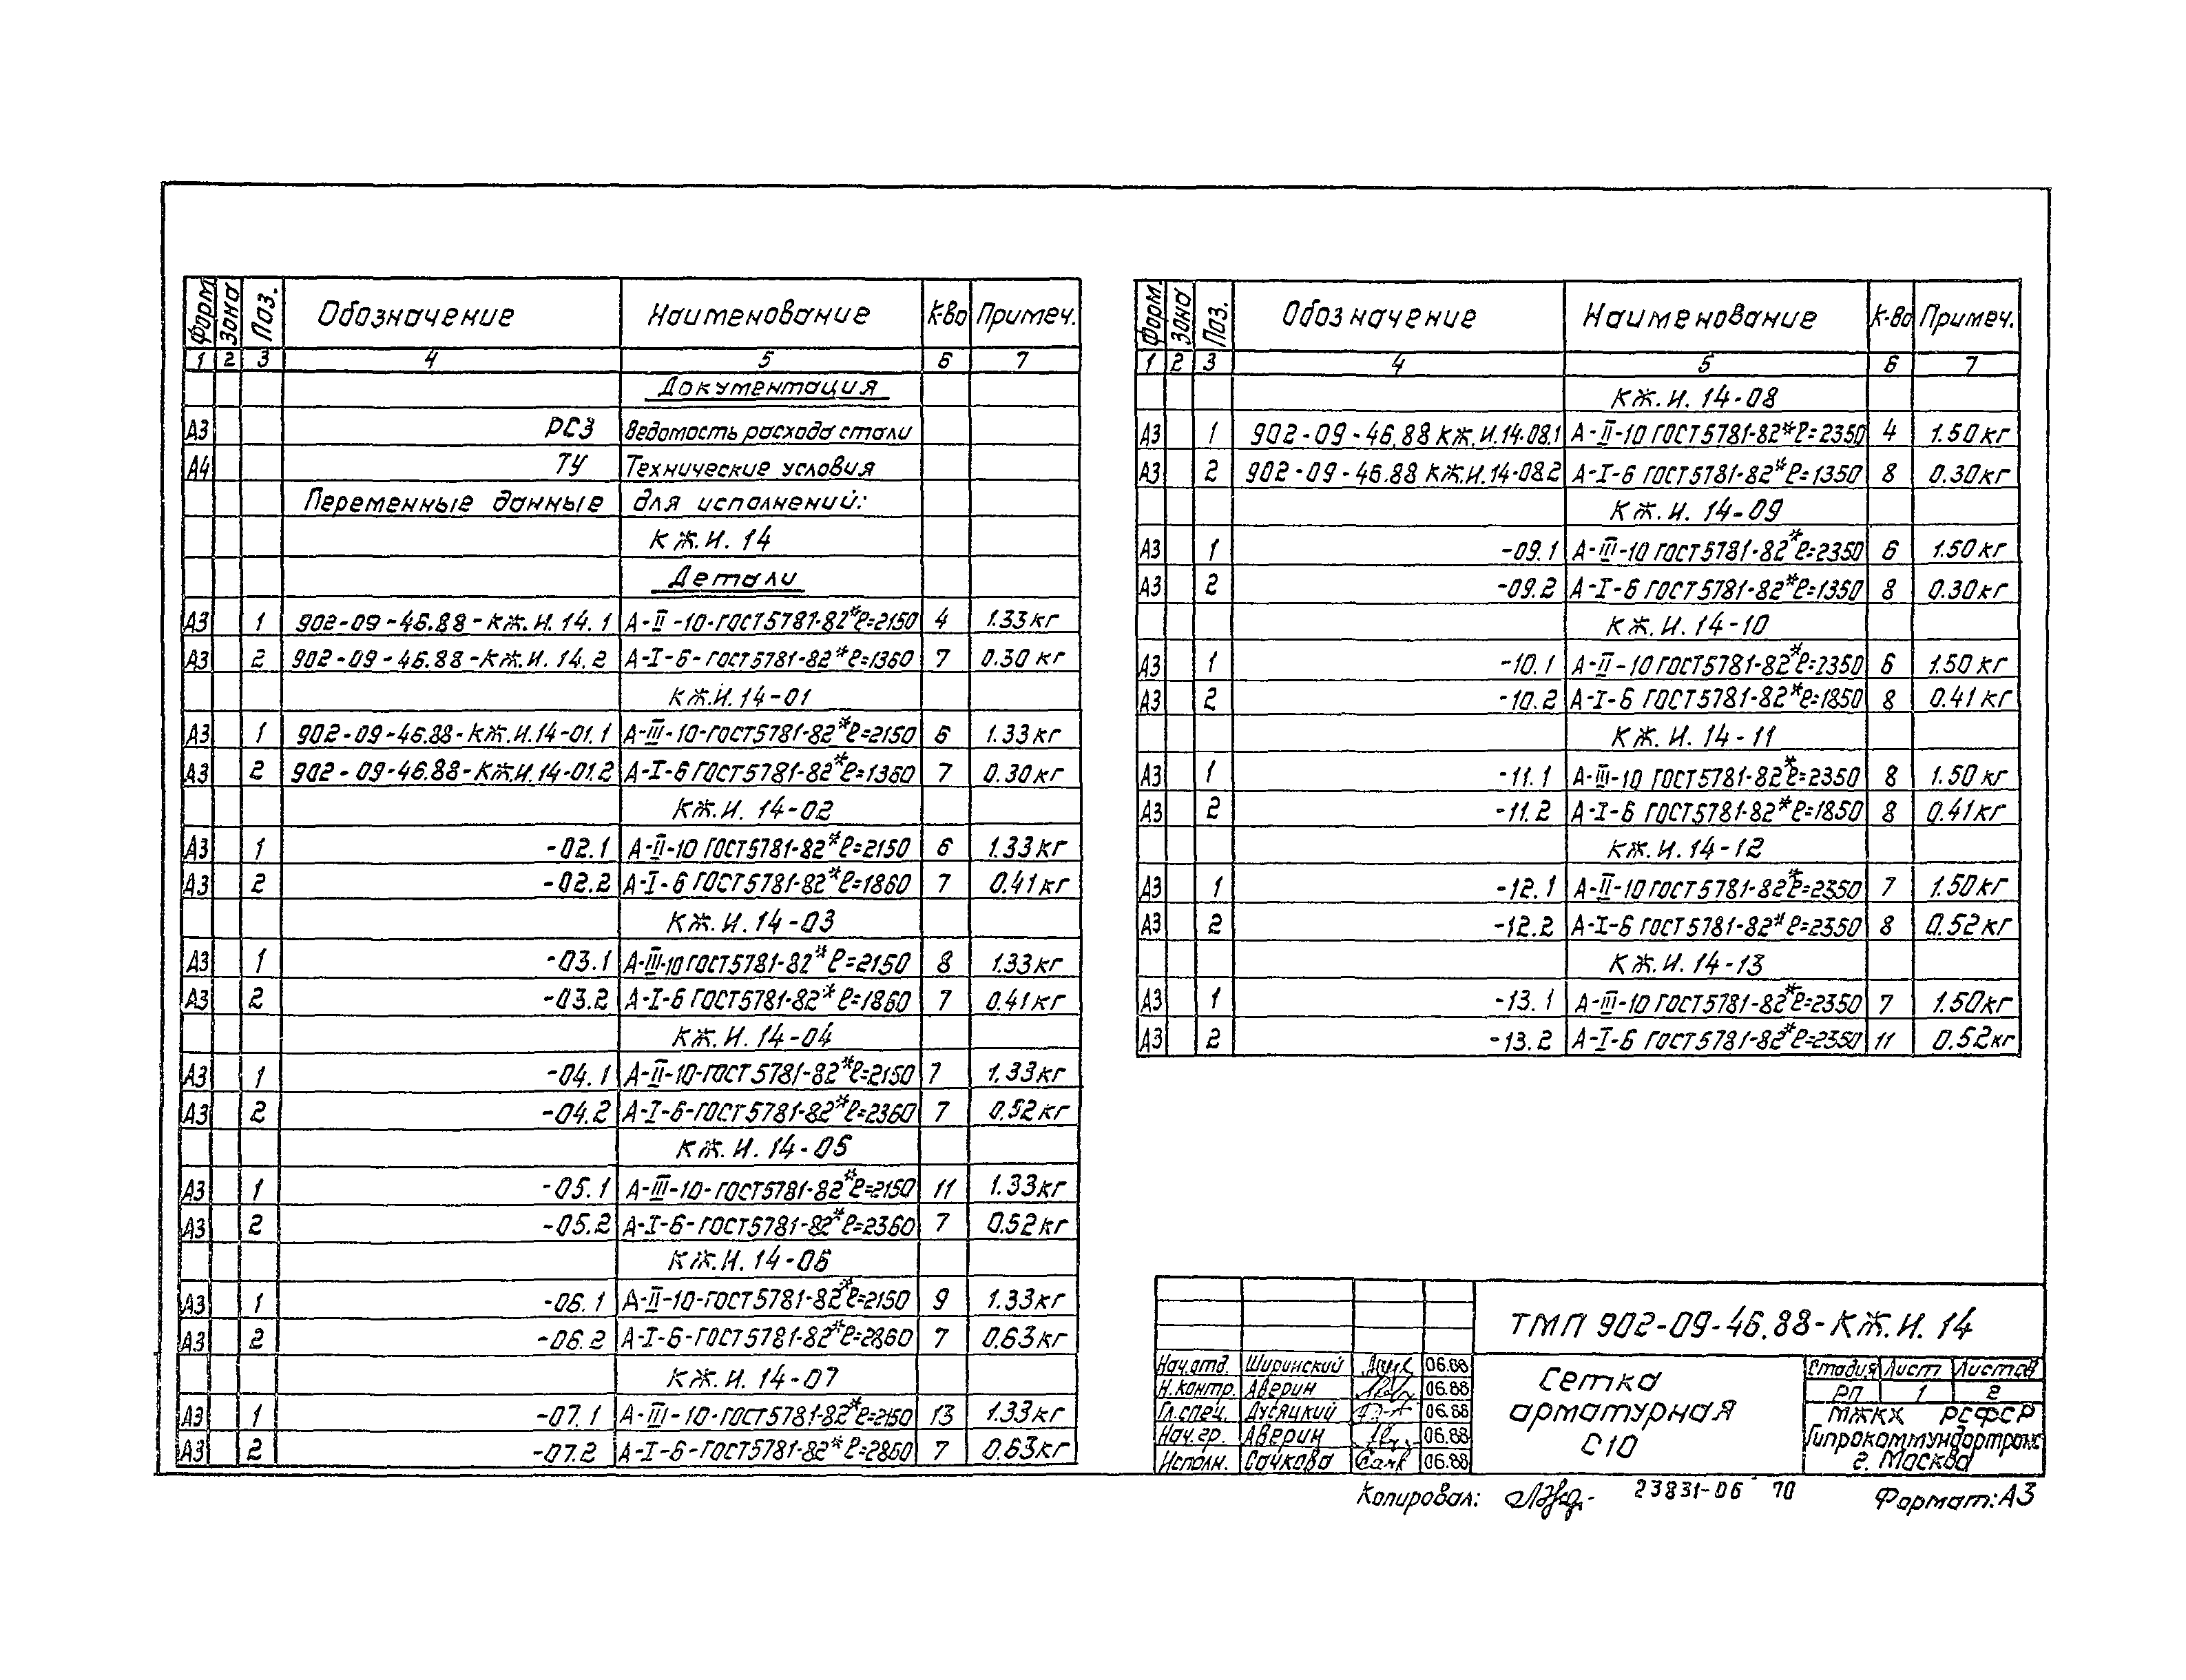 Форм. Зона Поз. Обозначение Наименование К-во Примеч.
1 2 3 4 5 6 7
Документация
А3 РС3 Ведомость расхода стали
А4 ТУ Технические условия
Переменные данные для исполнений:
КЖ.И. 14
Детали
А3 1 902-09-46.88-КЖ.И.14.1 А-II-10-ГОСТ5781-82* ℓ=2150 4 1.33кг
А3 2 902-09-46.88-КЖ.И.14.2 А-I-6-ГОСТ5781-82* ℓ=1360 7 0.30 кг
КЖ.И.14-01
А3 1 902-09-46.88-КЖ.И.14-01.1 А-III-10-ГОСТ5781-82* ℓ=2150 6 1.33кг
А3 2 902-09-46.88-КЖ.И.14-01.2 А-I-6 ГОСТ5781-82* ℓ=1360 7 0.30кг
КЖ.И. 14-02
А3 1 -02.1 А-II-10 ГОСТ5781-82* ℓ=2150 6 1.33кг
А3 2 -02.2 А-I-6 ГОСТ5781-82* ℓ=1860 7 0.41кг
КЖ.И. 14-03
А3 1 -03.1 А-III-10 ГОСТ5781-82* ℓ=2150 8 1.33кг
А3 2 -03.2 А-I-6 ГОСТ5781-82* ℓ=1860 7 0.41кг
КЖ.И. 14-04
А3 1 -04.1 А-II-10-ГОСТ5781-82* ℓ=2150 7 1.33кг
А3 2 -04.2 А-I-6-ГОСТ5781-82* ℓ=2360 7 0.52кг
КЖ.И. 14-05
А3 1 -05.1 А-III-10-ГОСТ5781-82* ℓ=2150 11 1.33кг
А3 2 -05.2 А-I-6-ГОСТ5781-82* ℓ=2360 7 0.52кг
КЖ.И. 14-06
А3 1 -06.1 А-II-10-ГОСТ5781-82* ℓ=2150 9 1.33кг
А3 2 -06.2 А-I-6-ГОСТ5781-82* ℓ=2860 7 0.63кг
КЖ.И. 14-07
А3 1 -07.1 А-III-10-ГОСТ5781-82* ℓ=2150 13 1.33кг
А3 2 -07.2 А-I-6-ГОСТ5781-82* ℓ=2860 7 0.63кг
Форм. Зона Поз. Обозначение Наименование К-во Примеч.
1 2 3 4 5 6 7
КЖ.И. 14-08
А3 1 902-09-46.88 КЖ.И.14.08.1 А-II-10 ГОСТ5781-82* ℓ=2350 4 1.50кг
А3 2 902-09-46.88 КЖ.И.14-08.2 А-I-6 ГОСТ5781-82* ℓ=1350 8 0.30кг
КЖ.И. 14-09
А3 1 -09.1 А-III-10 ГОСТ5781-82* ℓ=2350 6 1.50кг
А3 2 -09.2 А-I-6 ГОСТ5781-82* ℓ=1350 8 0.30кг
КЖ.И.14-10
А3 1 -10.1 А-II-10 ГОСТ5781-82* ℓ=2350 6 1.50кг
А3 2 -10.2 А-I-6 ГОСТ5781-82* ℓ=1850 8 0.41кг
КЖ.И.14-11
А3 1 -11.1 А-III-10 ГОСТ5781-82* ℓ=2350 8 1.50кг
А3 2 -11.2 А-I-6 ГОСТ5781-82* ℓ=1850 8 0.41кг
КЖ.И.14-12
А3 1 -12.1 А-II-10 ГОСТ5781-82* ℓ=2350 7 1.50кг
А3 2 -12.2 А-I-6 ГОСТ5781-82* ℓ=2350 8 0.52кг
КЖ.И.14-13
А3 1 -13.1 А-III-10 ГОСТ5781-82* ℓ=2350 7 1.50кг
А3 2 -13.2 А-I-6 ГОСТ5781-82* ℓ=2350 11 0.52кг
ТМП 902-09-46.88-КЖ.И.14
Нач.отд. Ширинский 06.88
Н.контр. Аверин 06.88
Гл.спец. Дусяцкий 06.88
Нач.гр. Аверин 06.88
Исполн. Сачкова 06.88
Сетка
арматурная
С10
Стадия Лист Листов
РП 1 2
МЖКХ РСФСР
Гипрокоммундортранс
г. Москва
Копировал: 23831-06 10 Формат: А3